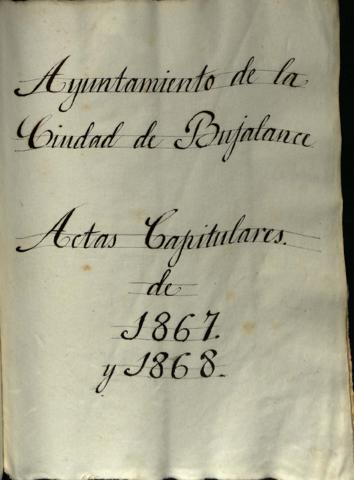 Ayuntamiento de la
Ciudad de Bujalance
Actas Capitulares.
de
1867.
y 1868.